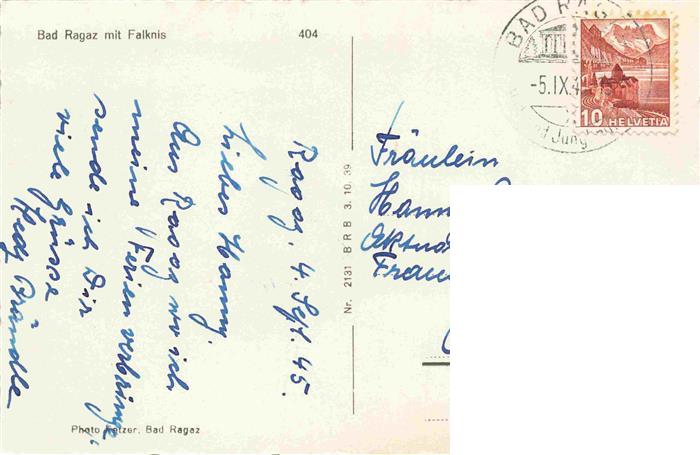 Bad Ragaz mit Falknis
404
Ragaz, 4. Sept. 45.
Liebes Hanny!
Aus Ragaz wo ich
meine Ferien verbringe,
sende ich Dir
viele Grüsse
Hedy Brändle
Photo Fetzer, Bad Ragaz
Nr. 2131 B R B 3. 10. 39
BAD RAGAZ
-5.IX.4
10 HELVETIA
Fräulein